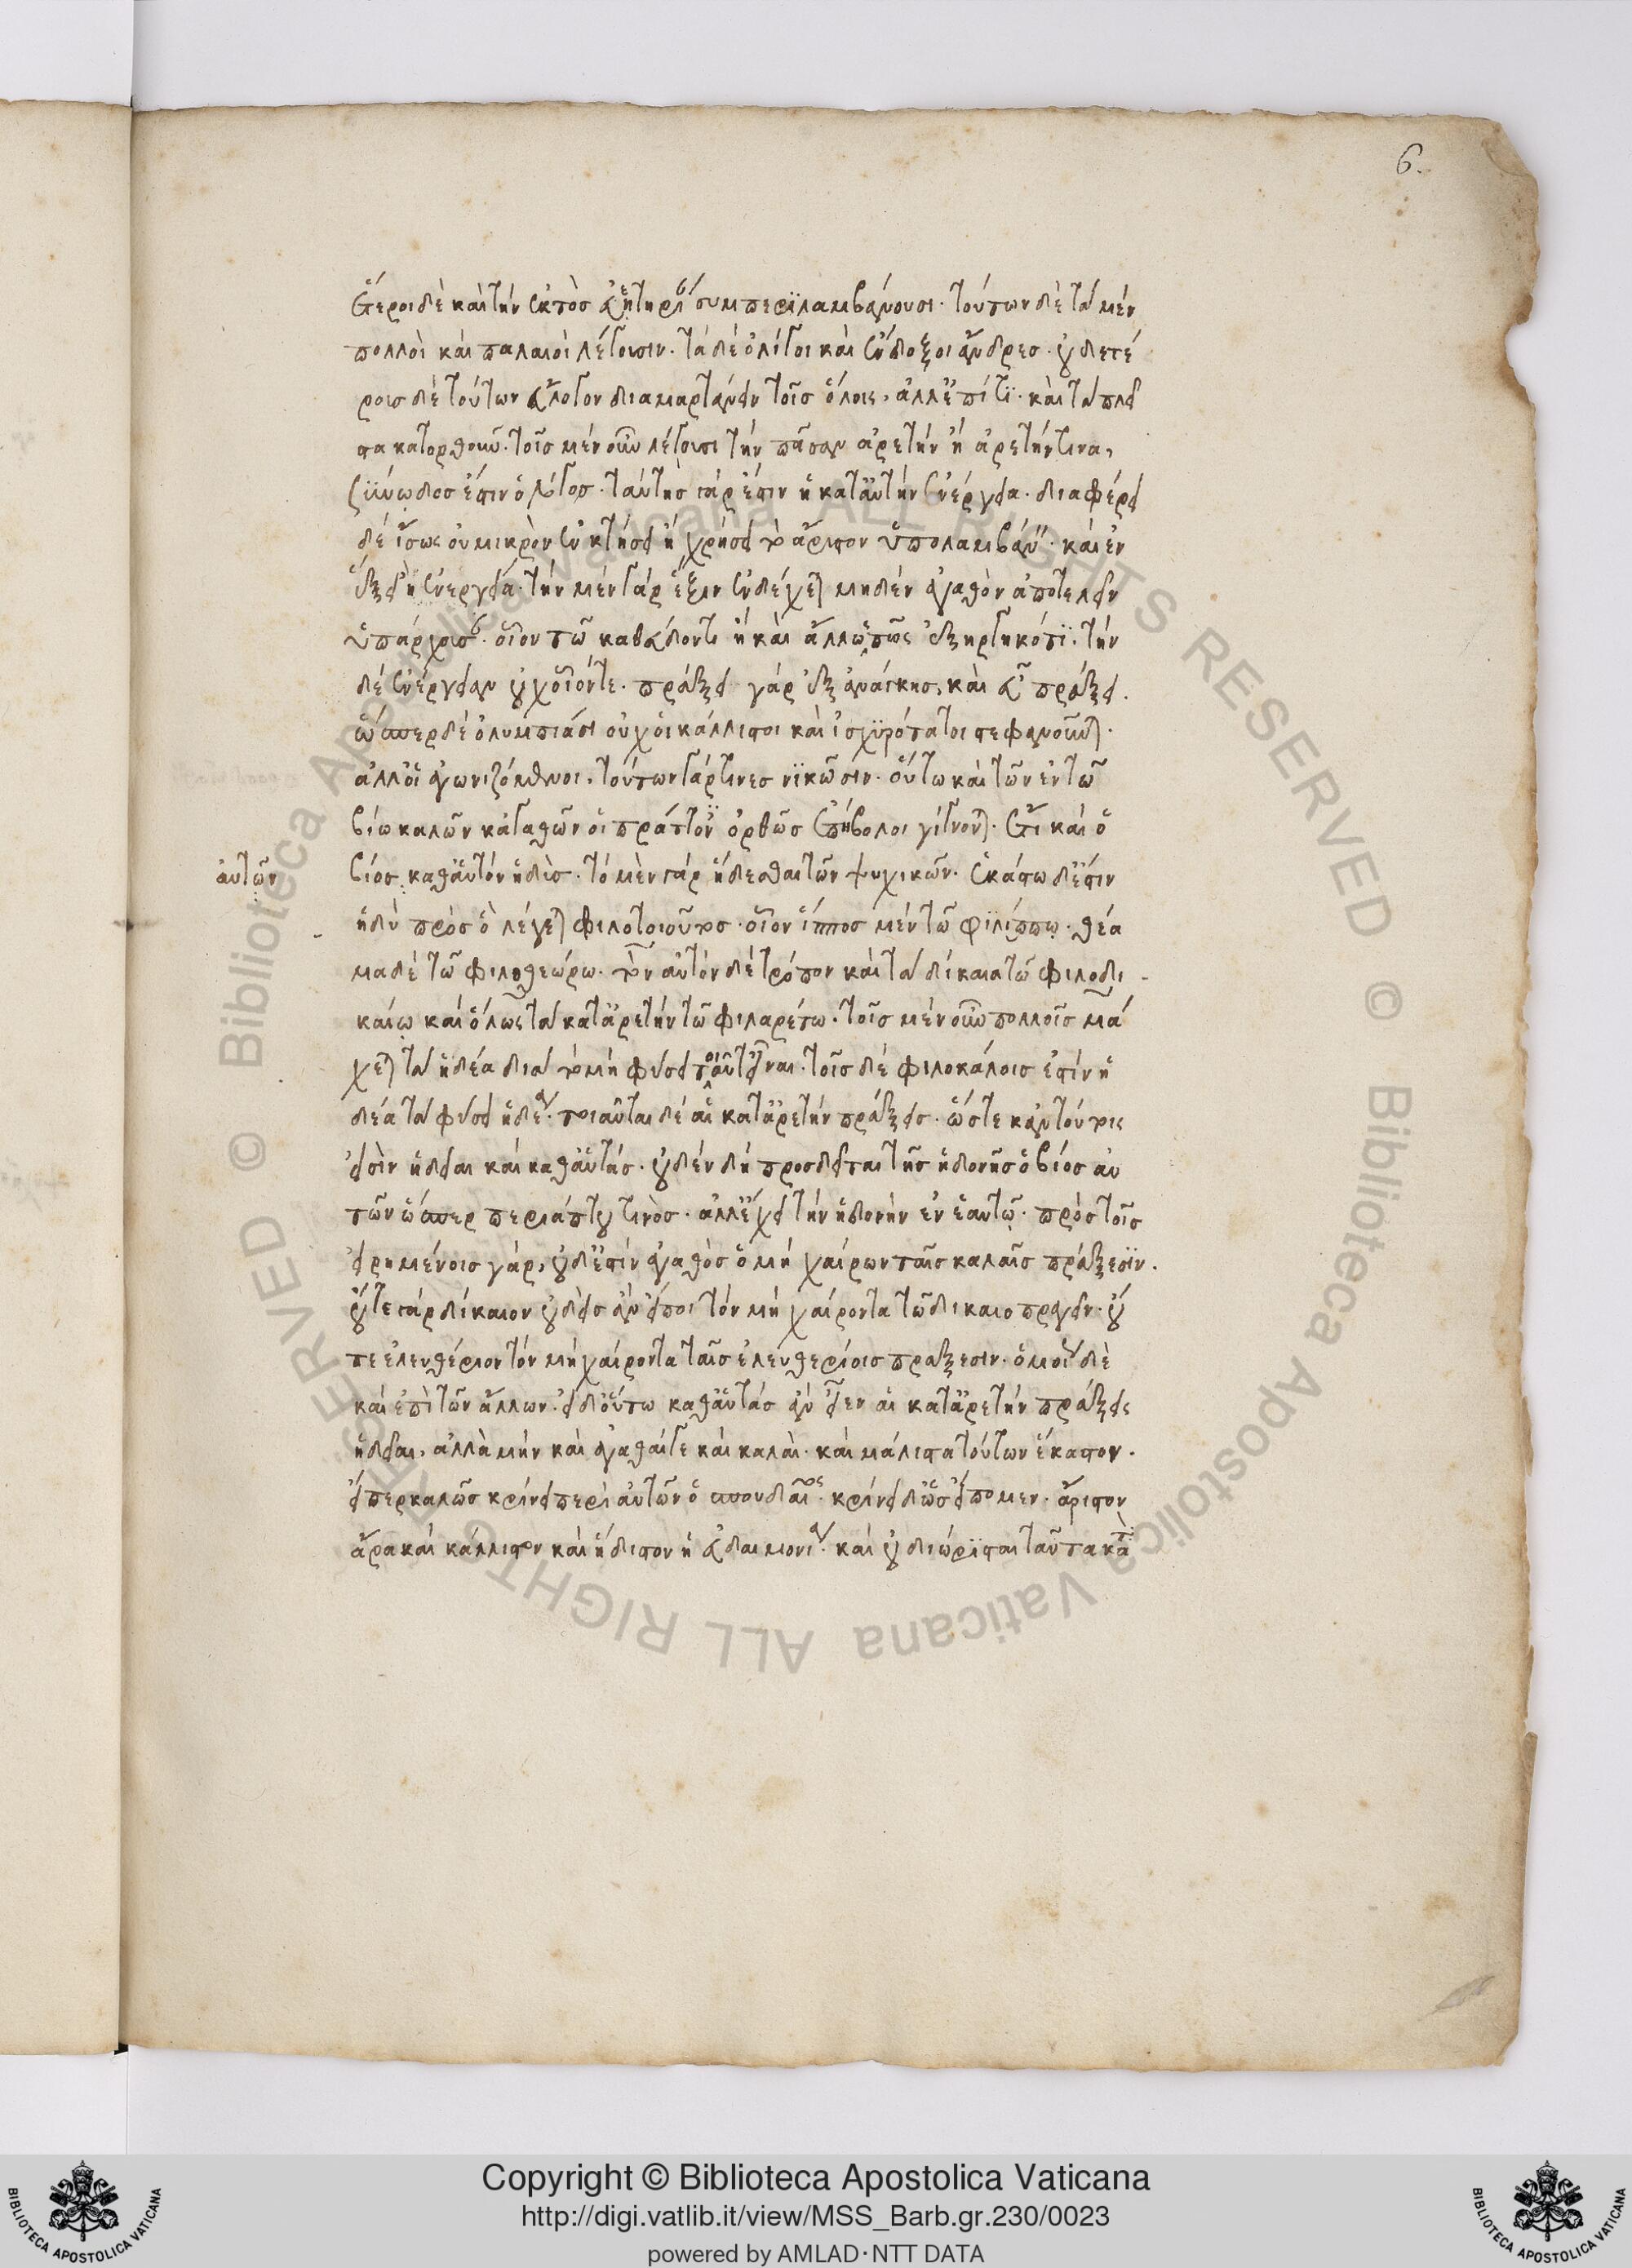 6.
ἕτεροι δὲ καὶ τὴν ἐκτὸς εὐετηρίαν συμπεριλαμβάνουσι. τούτων δὲ τὰ μὲν
πολλοὶ καὶ παλαιοὶ λέγουσιν. τὰ δὲ ὀλίγοι καὶ ἔνδοξοι ἄνδρες. οὐδετέ
ροις δὲ τούτων εὔλογον διαμαρτάνειν τοῖς ὅλοις, ἀλλ' ἔπί τι. καὶ τὰ πλεῖ
στα κατορθοῦν. τοῖς μὲν οὖν λέγουσι τὴν πᾶσαν ἀρετὴν ἢ ἀρετήν τινα,
συνωδός ἐστιν ὁ λόγος. ταύτης γάρ ἐστιν ἡ κατ' αὐτὴν ἐνέργεια. διαφέρει
δὲ ἴσως οὐ μικρὸν ἐν κτήσει ἢ χρήσει τὸ ἄριστον ὑπολαμβάνειν. καὶ ἐν
ἕξει ἢ ἐνεργεία. τὴν μὲν γὰρ ἕξιν ἐνδέχεται μηδὲν ἀγαθὸν ἀποτελεῖν
ὑπάρχουσαν. οἷον τῶ καθεύδοντι ἢ καὶ ἄλλως πως ἐξηργηκότι. τὴν
δὲ ἐνέργειαν οὐχ οἷόν τε. πράξει γὰρ ἐξ ἀνάγκης, καὶ εὖ πράξει.
ὥσπερ δὲ ὀλυμπιάσι οὐχ οἱ κάλλιστοι καὶ ἰσχυρότατοι στεφανοῦνται.
ἀλλ' οἱ ἀγωνιζόμενοι. τούτων γάρ τινες νικῶσιν. οὕτω καὶ τῶν ἐν τῶ
βίω καλῶν κἀγαθῶν οἱ πράττοντες ὀρθῶς ἐπήβολοι γίγνονται. ἔστι καὶ ὁ
αὐτῶν
βίος καθ' αὑτὸν ἡδὺς. τὸ μὲν γὰρ ἥδεσθαι τῶν ψυχικῶν. ἑκάστω δ' ἐστὶν
ἡδὺ πρὸς ὃ λέγεται φιλοτοιοῦτος. οἷον ἵππος μὲν τῶ φιλίππω. θέα
μα δὲ τῶ φιλοθεώρω. τὸν αὐτὸν δὲ τρόπον καὶ τὰ δίκαια τῶ φιλοδι
καίω καὶ ὅλως τὰ κατ' ἀρετὴν τῶ φιλαρέτω. τοῖς μὲν οὖν πολλοῖς μά
χεται τὰ ἡδέα διὰ τὸ μὴ φύσει τοιαῦτ' εἶναι. τοῖς δὲ φιλοκάλοις ἐστὶν ἡ
δέα τὰ φύσει ἡδέα. τοιαῦται δὲ αἱ κατ' ἀρετὴν πράξεις. ὥστε καὶ τούτοις
εἰσὶν ἡδεῖαι καὶ καθ' αὑτάς. οὐδὲν δὴ προσδεῖται τῆς ἡδονῆς ὁ βίος αὐ
τῶν ὥσπερ περιάπτου τινός. ἀλλ' ἔχει τὴν ἡδονὴν ἐν ἑαυτῷ. πρὸς τοῖς
εἰρημένοις γὰρ, οὐδ' ἐστὶν ἀγαθὸς ὁ μὴ χαίρων ταῖς καλαῖς πράξεσιν.
οὔτε γὰρ δίκαιον οὐδεὶς ἂν εἴποι τὸν μὴ χαίροντα τῶ δικαιοπραγεῖν. οὔ
τε ἐλευθέριον τὸν μὴ χαίροντα ταῖς ἐλευθερίοις πράξεσιν. ὁμοίως δὲ
καὶ ἐπὶ τῶν ἄλλων. εἰ δ' οὕτω καθ' αὑτὰς ἂν εἶεν αἱ κατ' ἀρετὴν πράξεις
ἡδεῖαι, ἀλλὰ μὴν καὶ ἀγαθαί γε καὶ καλαὶ. καὶ μάλιστα τούτων ἕκαστον.
εἴπερ καλῶς κρίνει περὶ αὐτῶν ὁ σπουδαῖος. κρίνει δ' ὡς εἴπομεν. ἄριστον
ἄρα καὶ κάλλιστον καὶ ἥδιστον ἡ εὐδαιμονία. καὶ οὐ διώρισται ταῦτα κατὰ